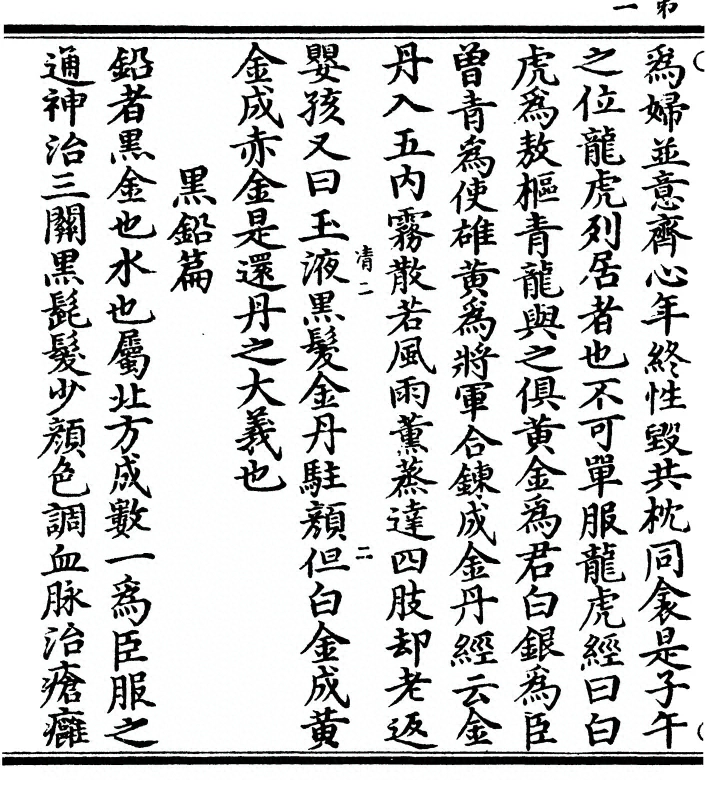 爲婦並意齊心年終性毀共枕同衾是子午
之位龍虎列居者也不可單服龍虎經曰白
虎爲敖樞青龍與之俱黄金爲君白銀爲臣
曾青爲使雄黄爲將軍合鍊成金丹經云金
丹入五内霧散若風雨薰蒸達四肢却老返
清二 二
嬰孩又曰玉液黒髮金丹駐顔但白金成黄
金成赤金是還丹之大義也
黒鉛篇
鉛者黒金也水也屬北方成數一爲臣服之
通神治三關黒髭髮少顔色調血脉治瘡癰